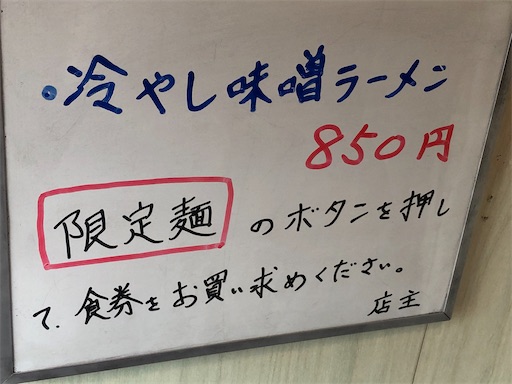 ・冷やし味噌ラーメン
850円
限定麺のボタンを押し
て.食券をお買い求めください。
店主